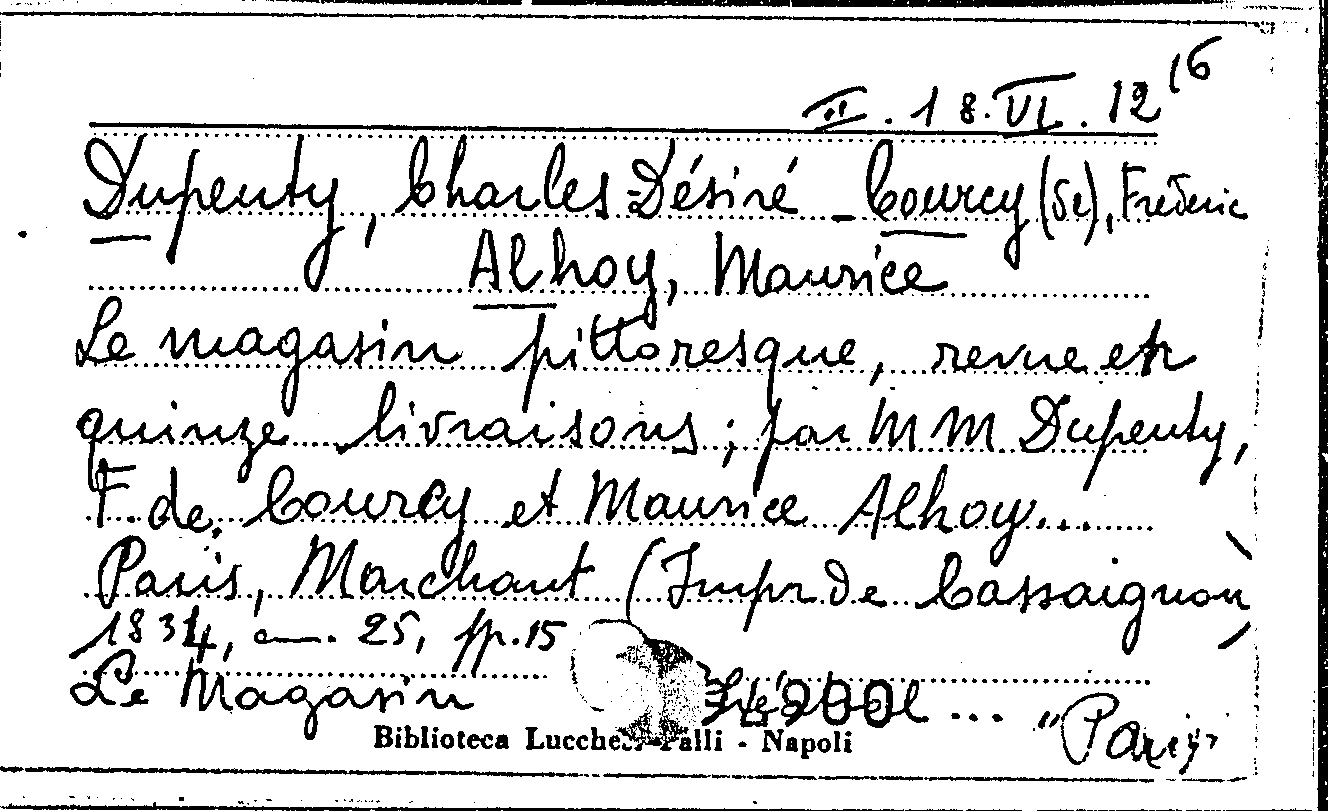 II. 18. VI. 12 16
Dupeuty, Charles-Désiré - Courcy (de), Frédéric
Alhoy, Maurice
Le magasin pittoresque, revue en
quinze livraisons; par MM Dupeuty,
F. de Courcy et Maurice Alhoy...
Paris, Marchant (Impr de Cassaignon)
1834, cm. 25, pp. 15
Le Magasin ... "Paris"
Biblioteca Lucchesi-Palli - Napoli